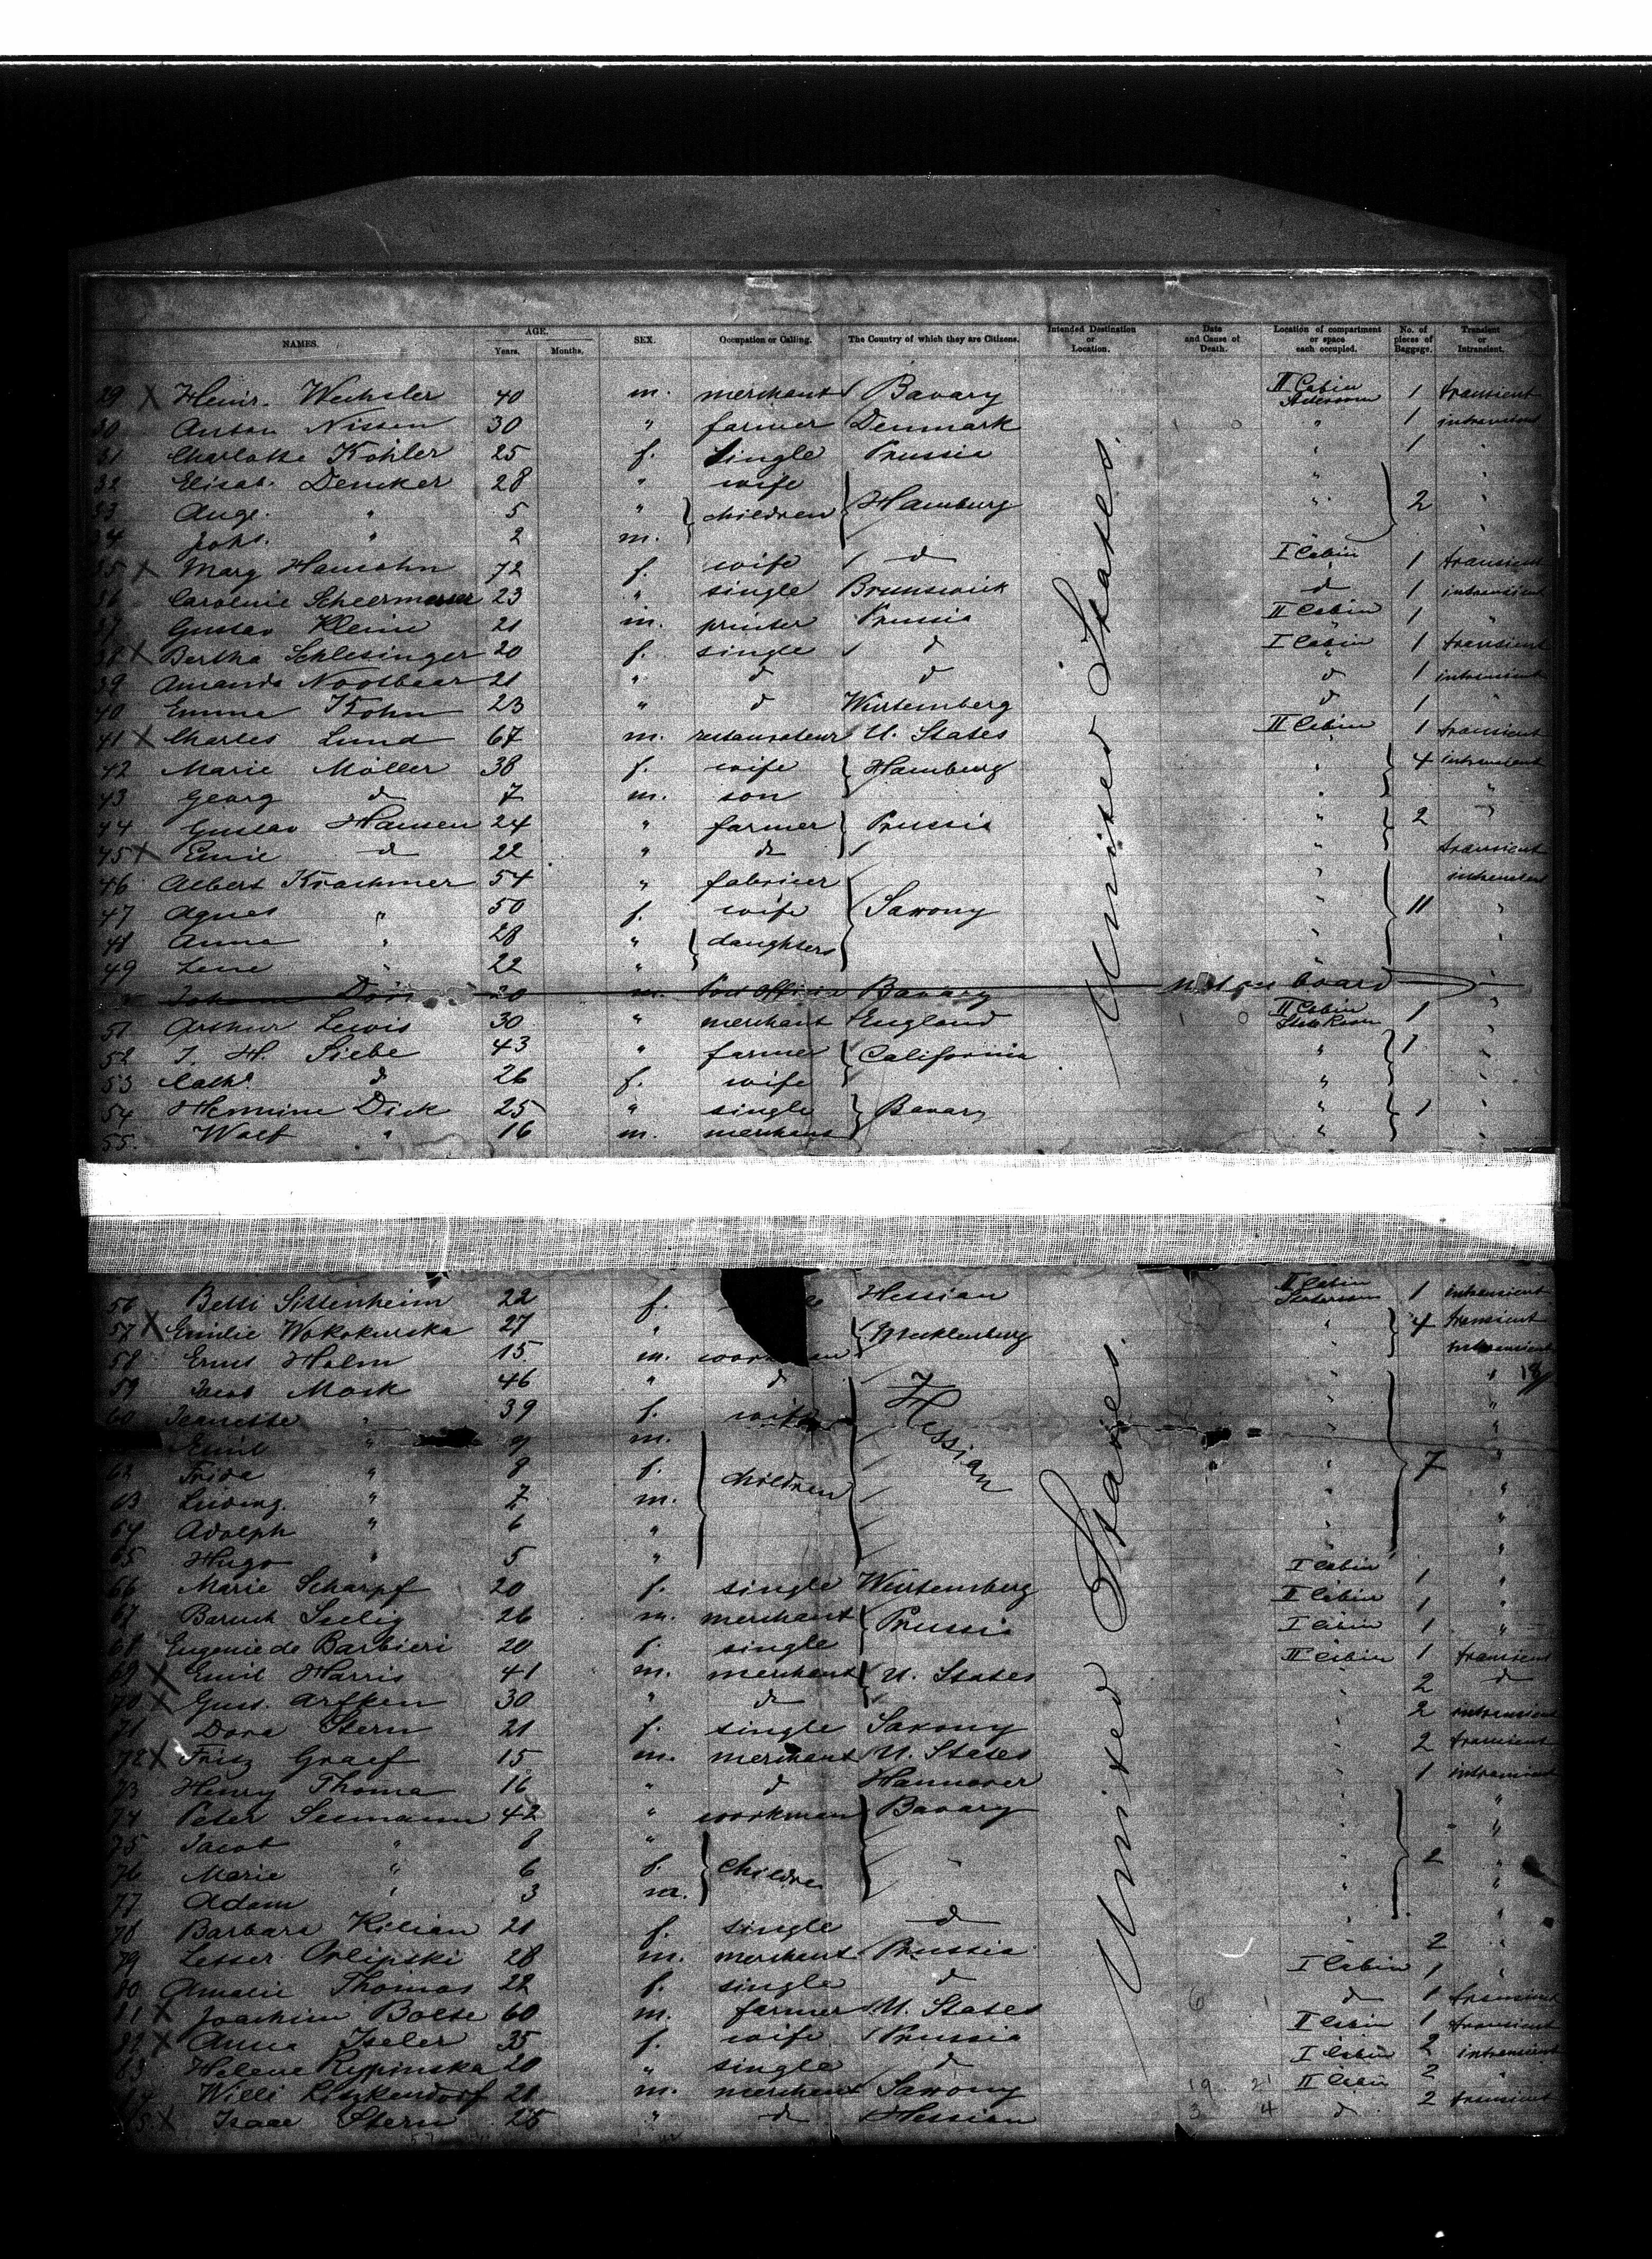 NAMES. AGE. Years. Months. SEX. Occupation or Calling. The Country of which they are Citizens. Intended Destination or Location. Date and Cause of Death. Location of compartment or space each occupied. No. of pieces of Baggage. Transient or Intransient.
29 X Heinr. Wechsler 40 m. merchant Bavary II Cabin 1 transient
30 Anton Nissen 30 " farmer Denmark " 1 intransient
31 Charlotte Köhler 25 f. single Prussia " 1
32 Elisab. Dencker 28 " wife Hamburg " 2 "
33 Aug. " 5 " children "
34 Johs. " 2 m.
35 X Marg Hansohn 72 f. wife d I Cabin 1 transient
36 Caroline 23 " single Brunswick d 1 intransient
37 Gustav Klein 21 m. printer Prussia II Cabin 1 "
38 X Bertha Schlesinger 20 f. single d I Cabin 1 transient
39 Amanda Nootbaar 21 " d d d 1 intransient
40 Emma Kohn 23 " d Würtemberg d 1 "
41 X Charles Lund 67 m. restaurateur U. States II Cabin 1 transient
42 Marie Möller 38 f. wife Hamburg " 4 intransient
43 Georg d 7 m. son " "
44 Gustav Hansen 24 " farmer Prussia " 2 "
45 X Emil d 22 " d " transient
46 Albert Krachmer 54 " Saxony " 11 intransient
47 Agnes " 50 f. wife " "
48 Anna " 28 " daughters " "
49 Lene " 22 "
Johann 20 m. Bavary not on board
51 Arthur Lewis 30 " merchant England II Cabin State Room 1 "
52 J. H. Siebe 43 " farmer California " 1 "
53 Cath. d 26 f. wife " "
54 Hermine Dick 25 " single Bavary " 1 "
55. Wolf " 16 m. merchant " "
United States.
56 Betti Sittenheim 22 f. Hessian II Cabin 1 intransient
57 X Emilie Wokokurska 27 " Mecklenburg " 4 transient
58 Ernst Holm 15 m. intransient
59 Jacob Mark 46 " d Hessian " 7 "
60 Jeanette " 39 f. wife "
Emil " 9 m. children "
62 Frida " 8 f. "
63 Ludwig. " 7 m. "
64 Adolph " 6 " "
65 Hugo " 5 " "
66 Marie Scharpf 20 f. single Würtemberg I Cabin 1 "
67 Baruch Selig 26 m. merchant Prussia II Cabin 1 "
68 Eugenie de Barbieri 20 f. single I Cabin 1 "
69 X Emil Harris 41 m. merchant U. States II Cabin 1 transient
70 X Gust. Arfken 30 " d " 2 d
71 Dora Stern 21 f. single Saxony " 2 intransient
72 X Fritz Graef 15 m. merchant U. States " 2 transient
73 Henry Thoma 16 " d Hannover " 1 intransient
74 Peter Seemann 42 " workman Bavary " 2 "
75 Jacob " 8 " children "
76 Marie " 6 f. "
77 Adam " 3 m. "
78 Barbara Kilian 21 f. single d " "
79 Lesser Orlipski 28 m. merchant Prussia " 2 "
80 Amalie Thomas 22 f. single d I Cabin 1 "
81 X Joachim Bolte 60 m. farmer U. States d 1 transient
82 X Anna Iseler 35 f. wife Prussia II Cabin 1 transient
83 Helene Rypinska 20 " single d I Cabin 2 intransient
84 Willi 21 m. merchant Saxony II Cabin 2 "
85 X Isaac Stern 25 " d Hessian d 2 transient
United States.